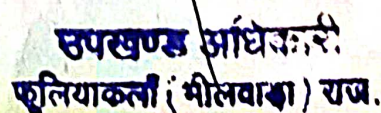 उपखण्ड अधिकारी
फूलियाकलाँ (भीलवाड़ा) राज.